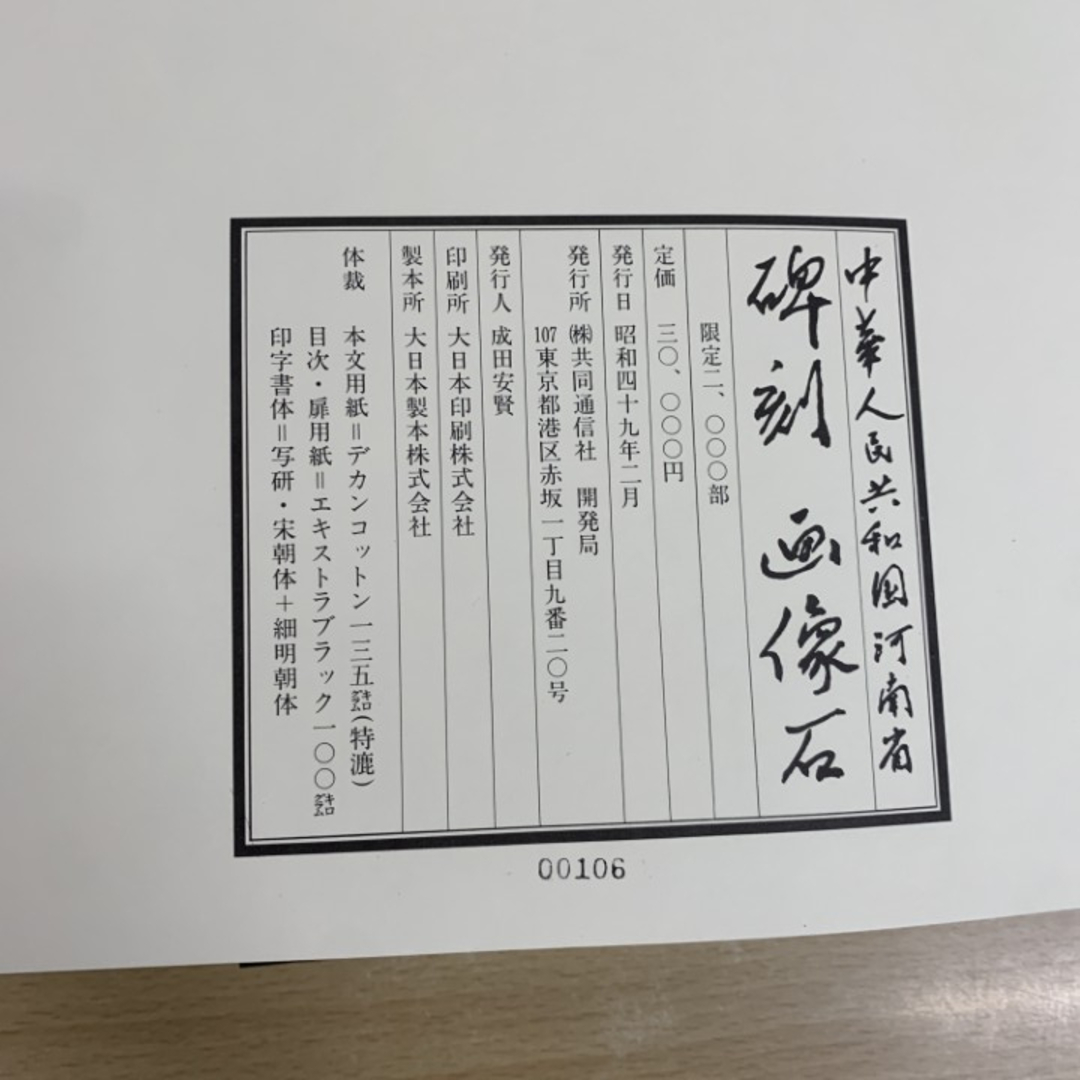 中華人民共和国河南省
碑刻 画像石
限定二、〇〇〇部
定価 三〇、〇〇〇円
発行日 昭和四十九年二月
発行所 ㈱共同通信社 開発局
107東京都港区赤坂一丁目九番二〇号
発行人 成田安賢
印刷所 大日本印刷株式会社
製本所 大日本製本株式会社
体裁 本文用紙＝デカンコットン一三五㌔㌘(特漉)
目次・扉用紙＝エキストラブラック一〇〇㌕
印字書体＝写研・宋朝体＋細明朝体
00106